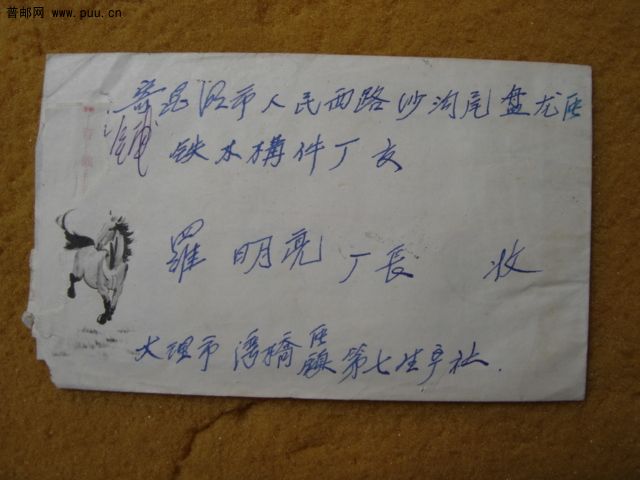 普邮网 www.puu.cn
寄昆明市人民西路沙沟尾盘龙区
铁木構件厂交
羅明亮厂長 收
大理市湾橋区镇第七生产社.